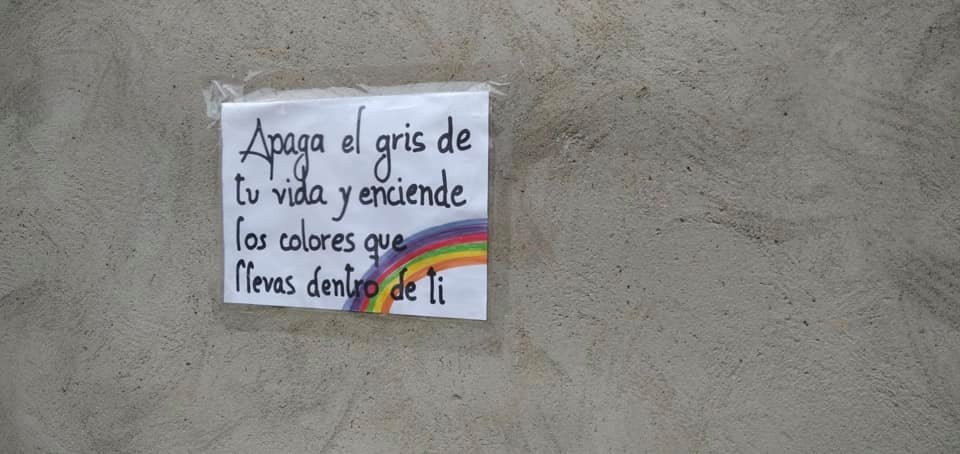 Apaga el gris de
tu vida y enciende
los colores que
llevas dentro de ti